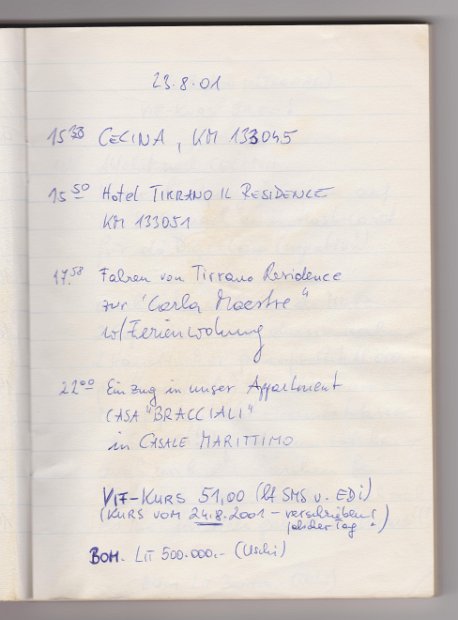 23.8.01
15 38 CECINA, KM 133045
15 50 Hotel TIRRANO IL RESIDENCE
KM 133051
17.58 Fahren von Tirrano Residence
zur "Carla Maestre"
w/Ferienwohnung
22 00 Einzug in unser Appartment
CASA "BRACCIALI"
in CASALE MARITTIMO
VIF-KURS 51,00 (lt SMS v. EDi)
(KURS VOM 24.8.2001 - verschrieben!
falscher Tag!)
BOM. LIT 500.000.- (Uschi)